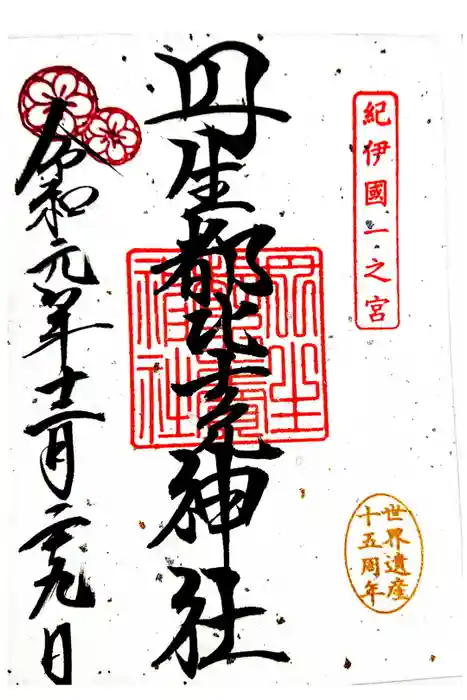 紀伊國一之宮
世界遺産
十五周年
丹生都比売神社
令和元年十二月二十九日